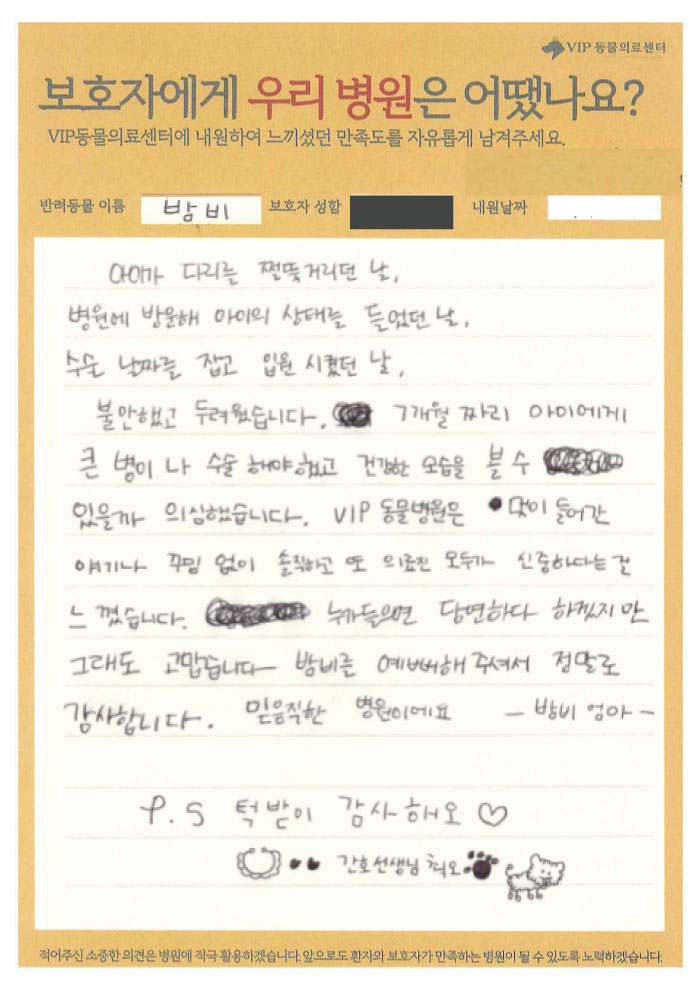 VIP 동물의료센터
보호자에게 우리 병원은 어땠나요?
VIP동물의료센터에 내원하여 느끼셨던 만족도를 자유롭게 남겨주세요.
반려동물 이름 밤비 보호자 성함 내원날짜
아이가 다리를 쩔뚝거리던 날,
병원에 방문해 아이의 상태를 들었던 날,
수술 날짜를 잡고 입원 시켰던 날,
불안했고 두려웠습니다. 7개월 짜리 아이에게
큰 병이 나 수술 해야했고 건강한 모습을 볼 수
있을까 의심했습니다. VIP 동물병원은 멋이 들어간
얘기나 꾸밈 없이 솔직하고 또 의료진 모두가 신중하다는 걸
느꼈습니다. 누가들으면 당연하다 하겠지만
그래도 고맙습니다 밤비를 예뻐해 주셔서 정말로
감사합니다. 믿음직한 병원이에요 - 밤비 엄마 -
P.S 턱받이 감사해요 ♡
간호선생님 최고
적어주신 소중한 의견은 병원에 적극 활용하겠습니다. 앞으로도 환자와 보호자가 만족하는 병원이 될 수 있도록 노력하겠습니다.